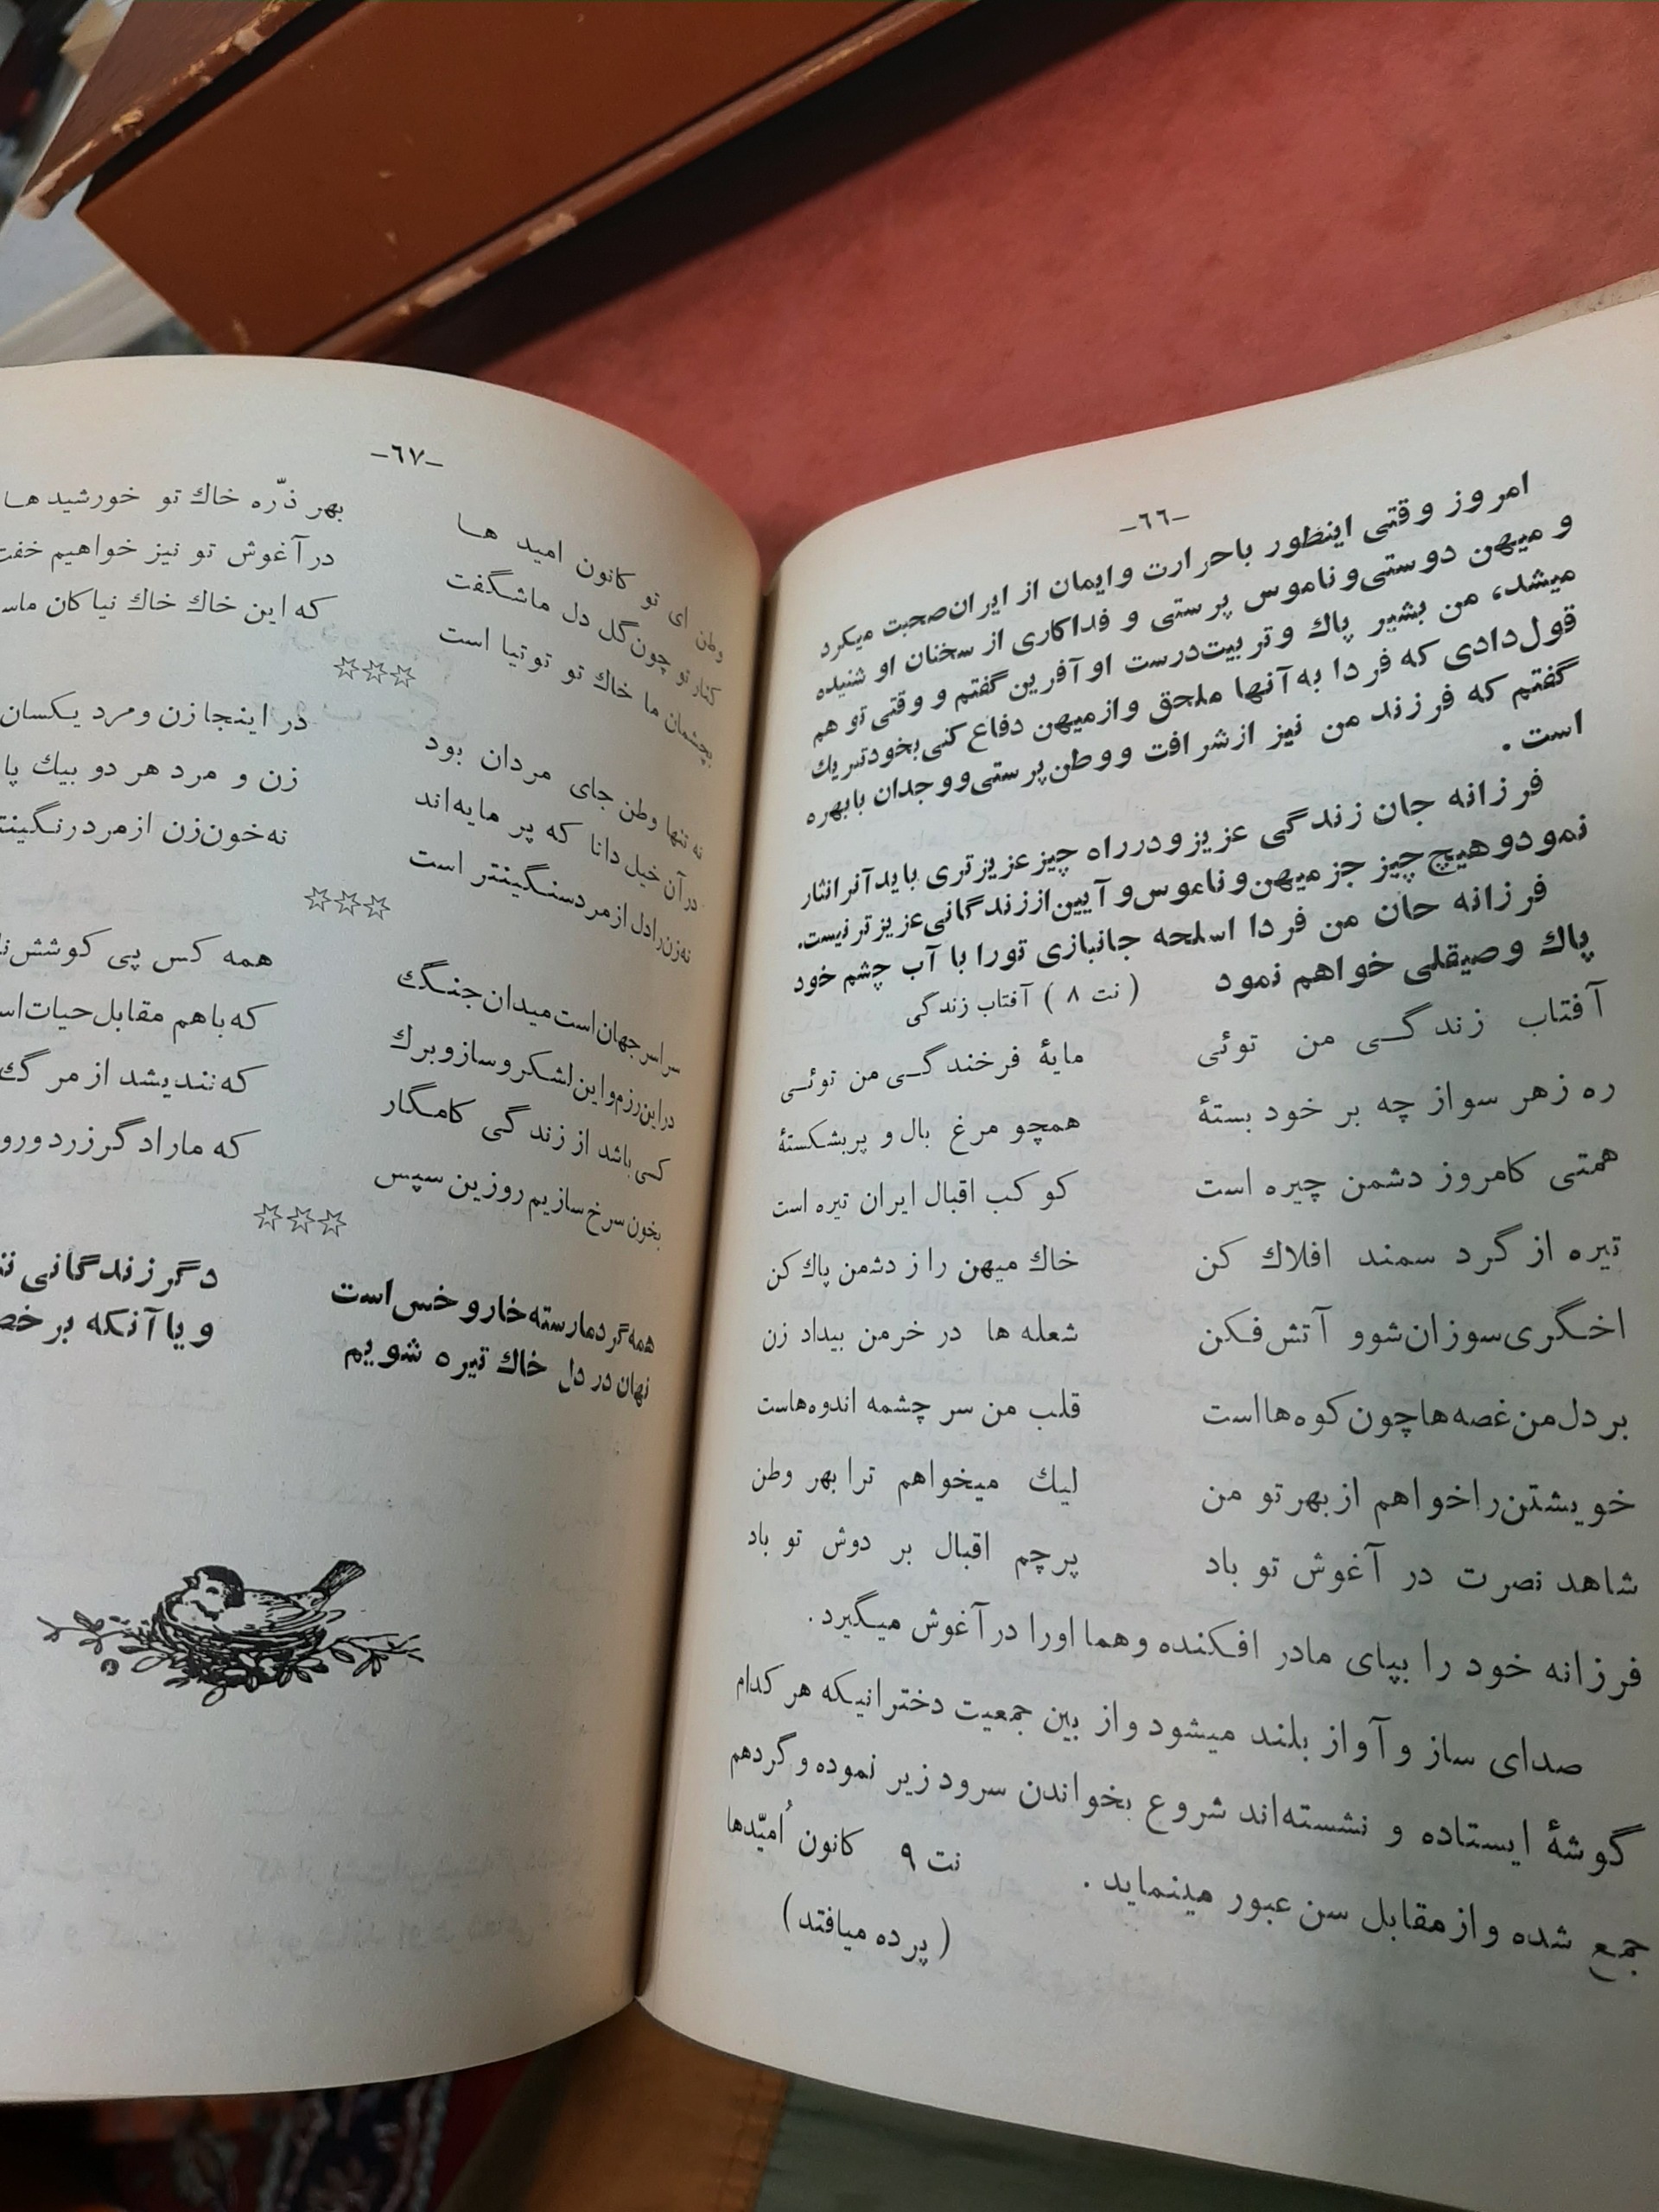 -٦٦-
امروز وقتی اینطور باحرارت وایمان از ایران‌صحبت میکرد
و میهن دوستی‌و ناموس پرستی و فداکاری از سخنان او شنیده
میشد، من بشیر پاك وتربیت‌درست او آفرین گفتم و وقتی تو هم
قول‌دادی که فردا به آنها ملحق وازمیهن دفاع کنی‌بخودتبریك
گفتم که فرزند من نیز ازشرافت ووطن‌پرستی‌ووجدان بابهره
است .
فرزانه جان زندگی عزیزو درراه چیز عزیز تری بایدآنرانثار
نمودو هیچ‌چیز جزمیهن‌و ناموس‌و آیین‌از‌زندگانی‌عزیزترنیست.
فرزانه حان من فردا اسلحه جانبازی تورا با آب چشم خود
پاك وصیقلی خواهم نمود
( نت ٨ ) آفتاب زندگی
آفتاب زندگـی من توئی مایهٔ فرخندگـی من توئـی
ره زهر سواز چه بر خود بستهٔ همچو مرغ بال و پربشکستهٔ
همتی کامروز دشمن چیره است کو کب اقبال ایران تیره است
تیره از گرد سمند افلاك کن خاك میهن را ز دشمن پاك کن
اخـگری سوزان‌شوو آتش‌فـکن شعله ها در خرمن بیداد زن
بر دل‌من‌غصه‌هاچون‌کوه‌هااست قلب من سر چشمه اندوه‌هاست
خویشتن‌راخواهم ازبهر تو من لیك میخواهم ترا بهر وطن
شاهد نصرت در آغوش تو باد پرچم اقبال بر دوش تو باد
فرزانه خود را بپای مادر افـکنده وهما اورا درآغوش میـگیرد.
صدای ساز و آواز بلند میشود واز بین جمعیت دخترانیـکه هر کدام
گوشهٔ ایستاده و نشسته‌اند شروع بخواندن سرود زیر نموده و گردهم
جمع شده وازمقابل سن عبور مینماید .
نت ٩ کانون اُمیّدها
( پرده میافتد )
-٦٧-
وطن ای تو کانون امید هـا بهر ذرّه خاك تو خورشید هـا
کنار تو چون‌گل دل ماشگفت درآغوش تو نیز خواهیم
بچشمان ما خاك تو توتیا است که این خاك خاك نیاکان
☆☆☆
نه تنها وطن جای مردان بود در اینجا زن ومرد یـکسان
در آن خیل دانا که پر مایه‌اند زن و مرد هر دو بیك
نه‌زن‌رادل ازمردسنـگینتر است نه‌خون‌زن ازمرد
☆☆☆
سراسرجهان‌است‌میدان‌جنـگ همه کس پی کوشش
دراین‌رزم‌و‌این‌لشـکر‌وساز‌وبرك که‌باهم مقابل‌حیات
کسی‌باشد از زندگی کامـگار که نندیشد از مرگ
بخون‌سرخ‌سازیم روزین سپس که ماراد گرزرد
☆☆☆
همه‌گردمارسته‌خاروخس‌است دگرزندگانی
نهان در دل خاك تیره شویم ویاآنکه بر